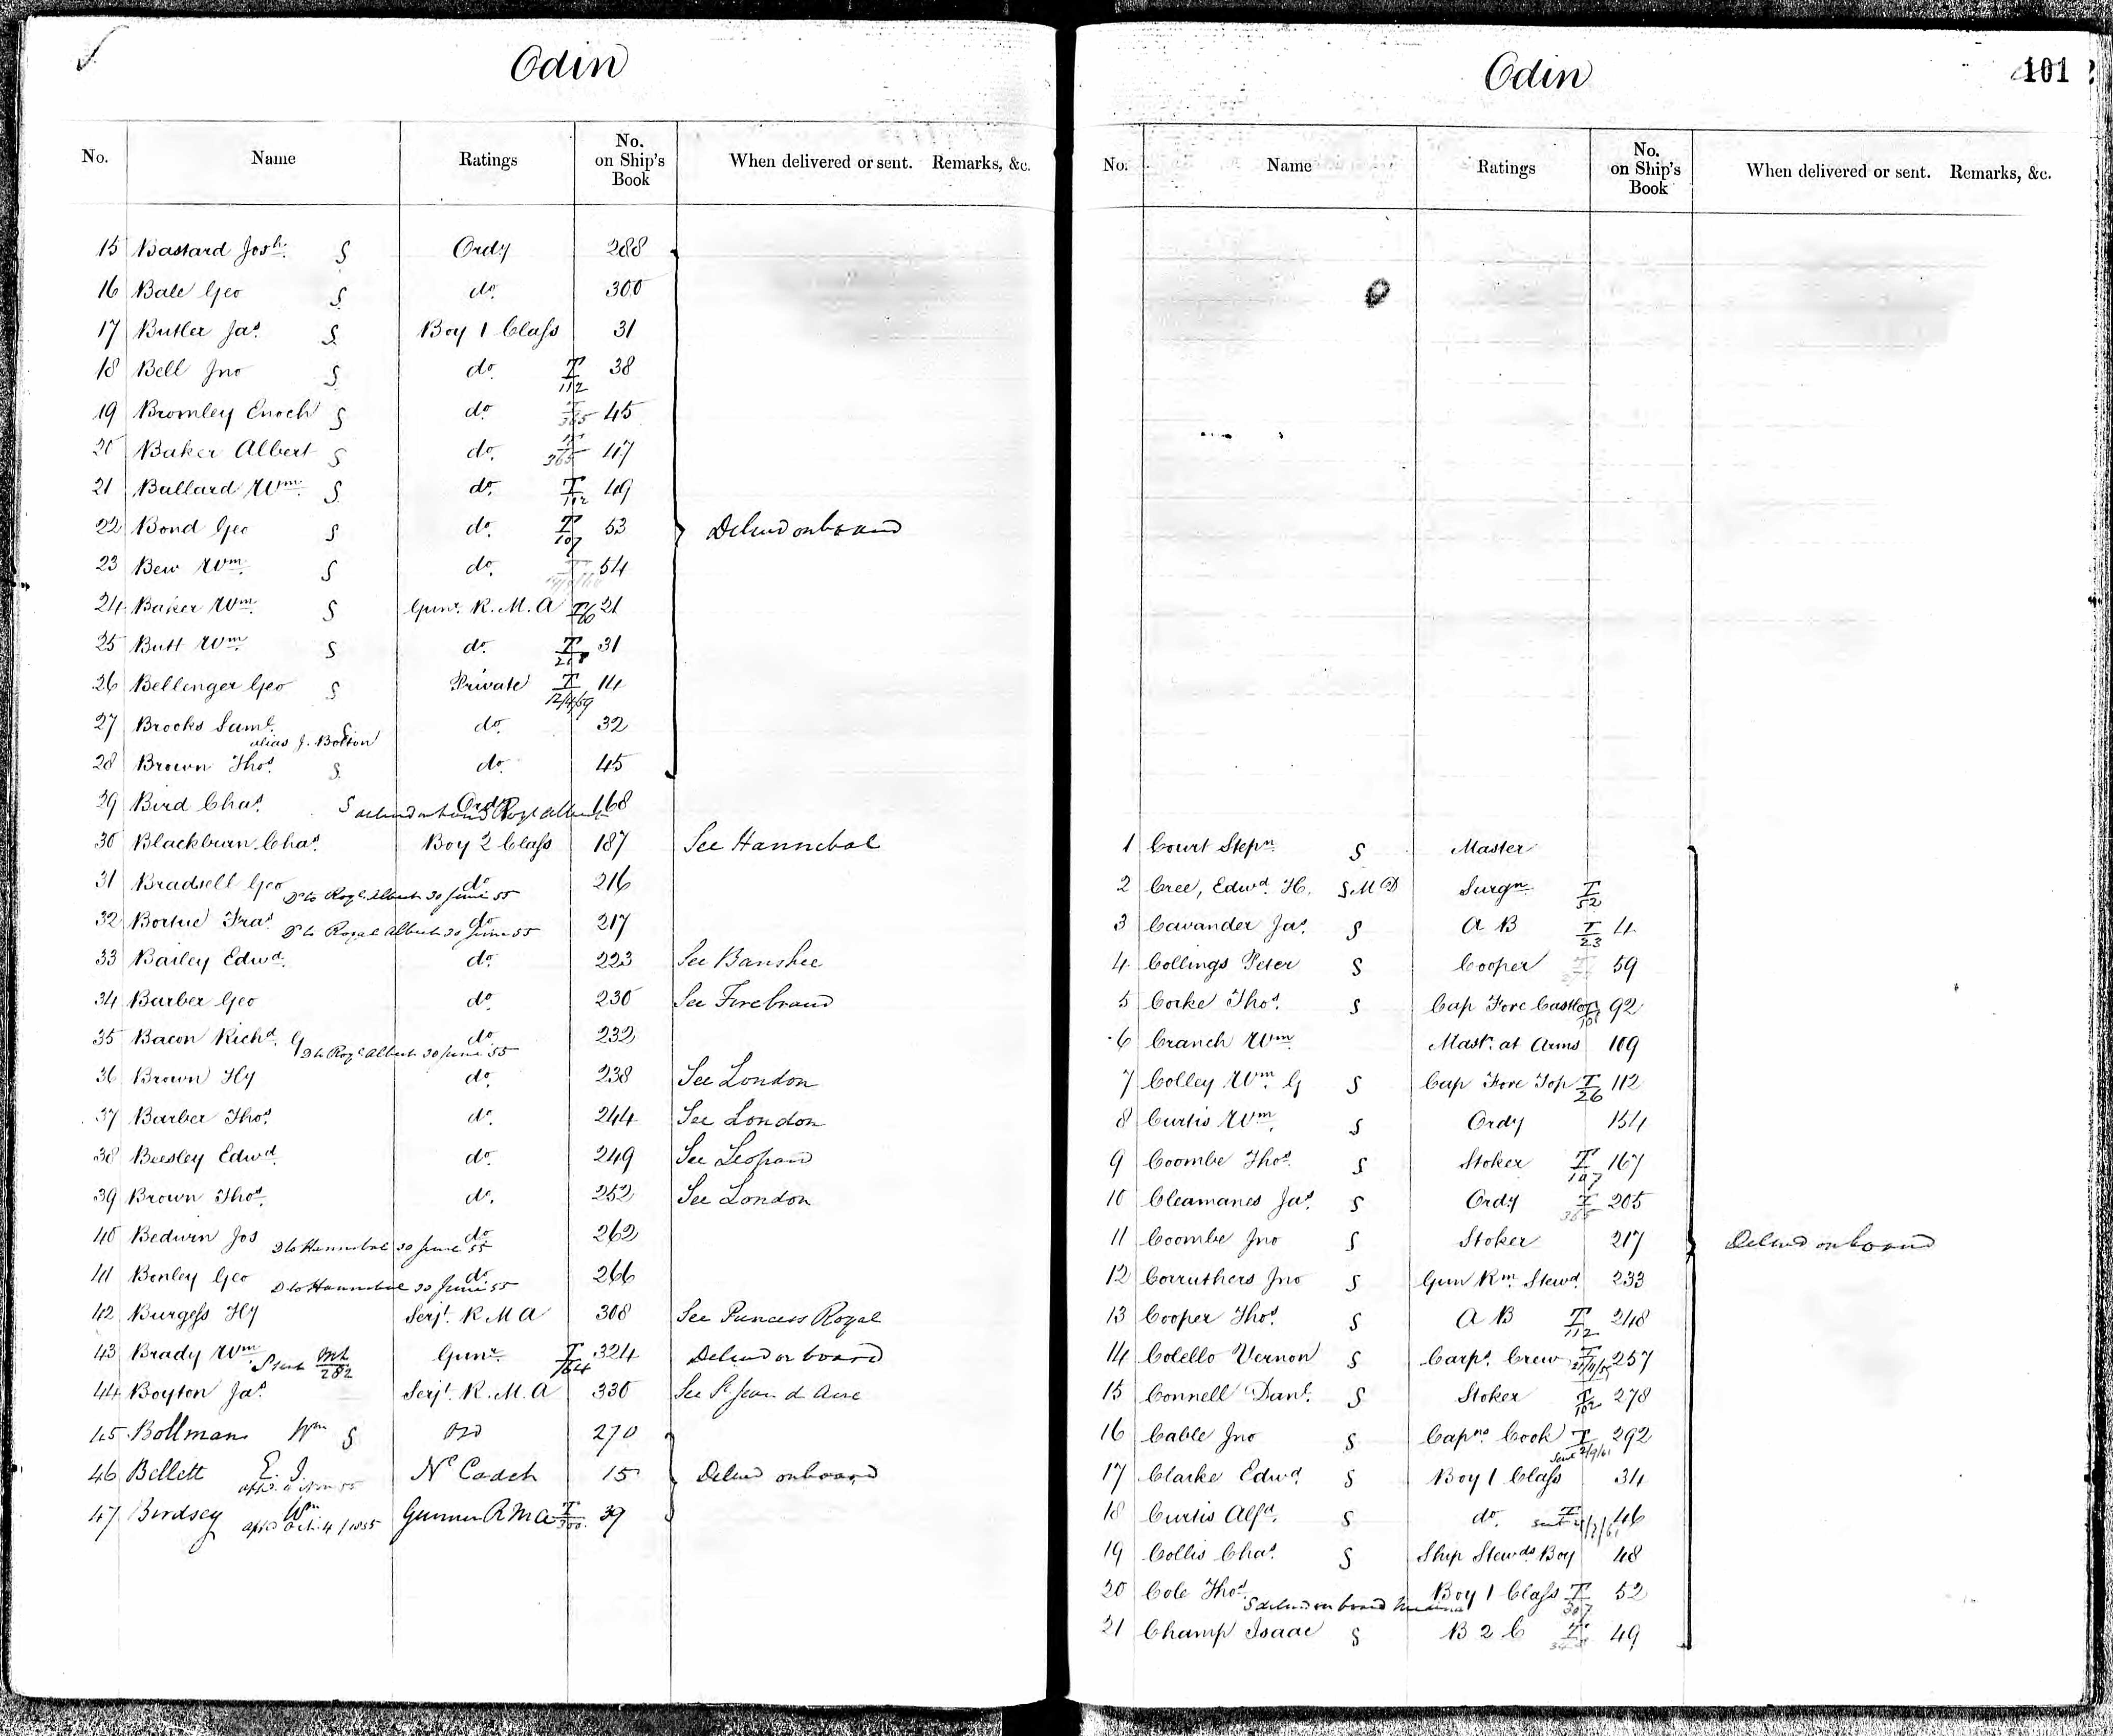 Odin
No. Name Ratings No. on Ship's Book When delivered or sent. Remarks, &c.
15 Bastard Josh. S Ordy 288
16 Bale Geo S do. 300
17 Butler Jas. S Boy 1 Class 31
18 Bell Jno S do. T/112 38
19 Bromley Enoch S do. T/365 45
20 Baker Albert S do. T/365 47
21 Bullard Wm. S do. T/112 49
22 Bond Geo S do. T/107 53 Delivd on board
23 Bew Wm. S do. T 54
24 Baker Wm. S Gunr. R. M. A T/60 21
25 Butt Wm. S do. T 31
26 Bellenger Geo S Private T/12/4/59 14
27 Brooks Saml. S do. 32
alias J. Bolton
28 Brown Thos. S do. 45
29 Bird Chas. Ordy 168
S delivd on board Royl Albert
30 Blackburn Chas. Boy 2 Class 187 See Hannibal
31 Bradsell Geo do 216
D to Royl. Albert 30 June 55
32 Bortue Fras. do 217
D to Royal Albert 30 June 55
33 Bailey Edwd. do. 223 See Banshee
34 Barber Geo do 230 See Firebrand
35 Bacon Richd. G do. 232
D to Royl Albert 30 June 55
36 Brown Hy do. 238 See London
37 Barber Thos. do. 244 See London
38 Beesley Edwd. do. 249 See Leopard
39 Brown Thos. do. 252 See London
40 Bedwin Jos do 262
D to Hannibal 30 June 55
41 Benley Geo do. 266
D to Hannibal 30 June 55
42 Burgess Hy Serjt. R M A 308 See Princess Royal
43 Brady Wm Gunr. T/64 324 Delivd on board
S sent 282
44 Boyton Jas. Serjt. R. M. A 330 See St Jean d Acre
45 Bollman Wm S Ord 270
46 Bellett E. J. Nl Cadet 15 Delivd on board
47 Birdsey Wm Gunner R M A T/300 39
appd Oct. 4/1855
Odin 101
No. Name Ratings No. on Ship's Book When delivered or sent. Remarks, &c.
1 Court Stepn. S Master
2 Cree, Edwd. H. S M D Surgn. T/52
3 Cavander Jas. S A B T/23 4
4 Collings Peter S Cooper T 59
5 Corke Thos. S Cap Fore Castle T/101 92
6 Cranch Wm. Mastr. at Arms 109
7 Colley Wm. G S Cap Fore Top T/26 112
8 Curtis Wm. S Ordy 154
9 Coombe Thos. S Stoker T/107 167
10 Cleamanes Jas. S Ordy T/365 205
11 Coombe Jno S Stoker 217 Delivd on board
12 Corruthers Jno S Gun Rm. Stewd. 233
13 Cooper Thos. S A B T/112 248
14 Colello Vernon S Carps. Crew T 257
15 Connell Danl. S Stoker T/102 278
16 Cable Jno S Capns. Cook T 292
sent 2/9/61
17 Clarke Edwd S Boy 1 Class 34
18 Curtis Alfd. S do. T 46
19 Collis Chas. S Ship Stewds Boy 48
20 Cole Thos. Boy 1 Class T/307 52
S delivd on board
21 Champ Isaac S B 2 C T 49